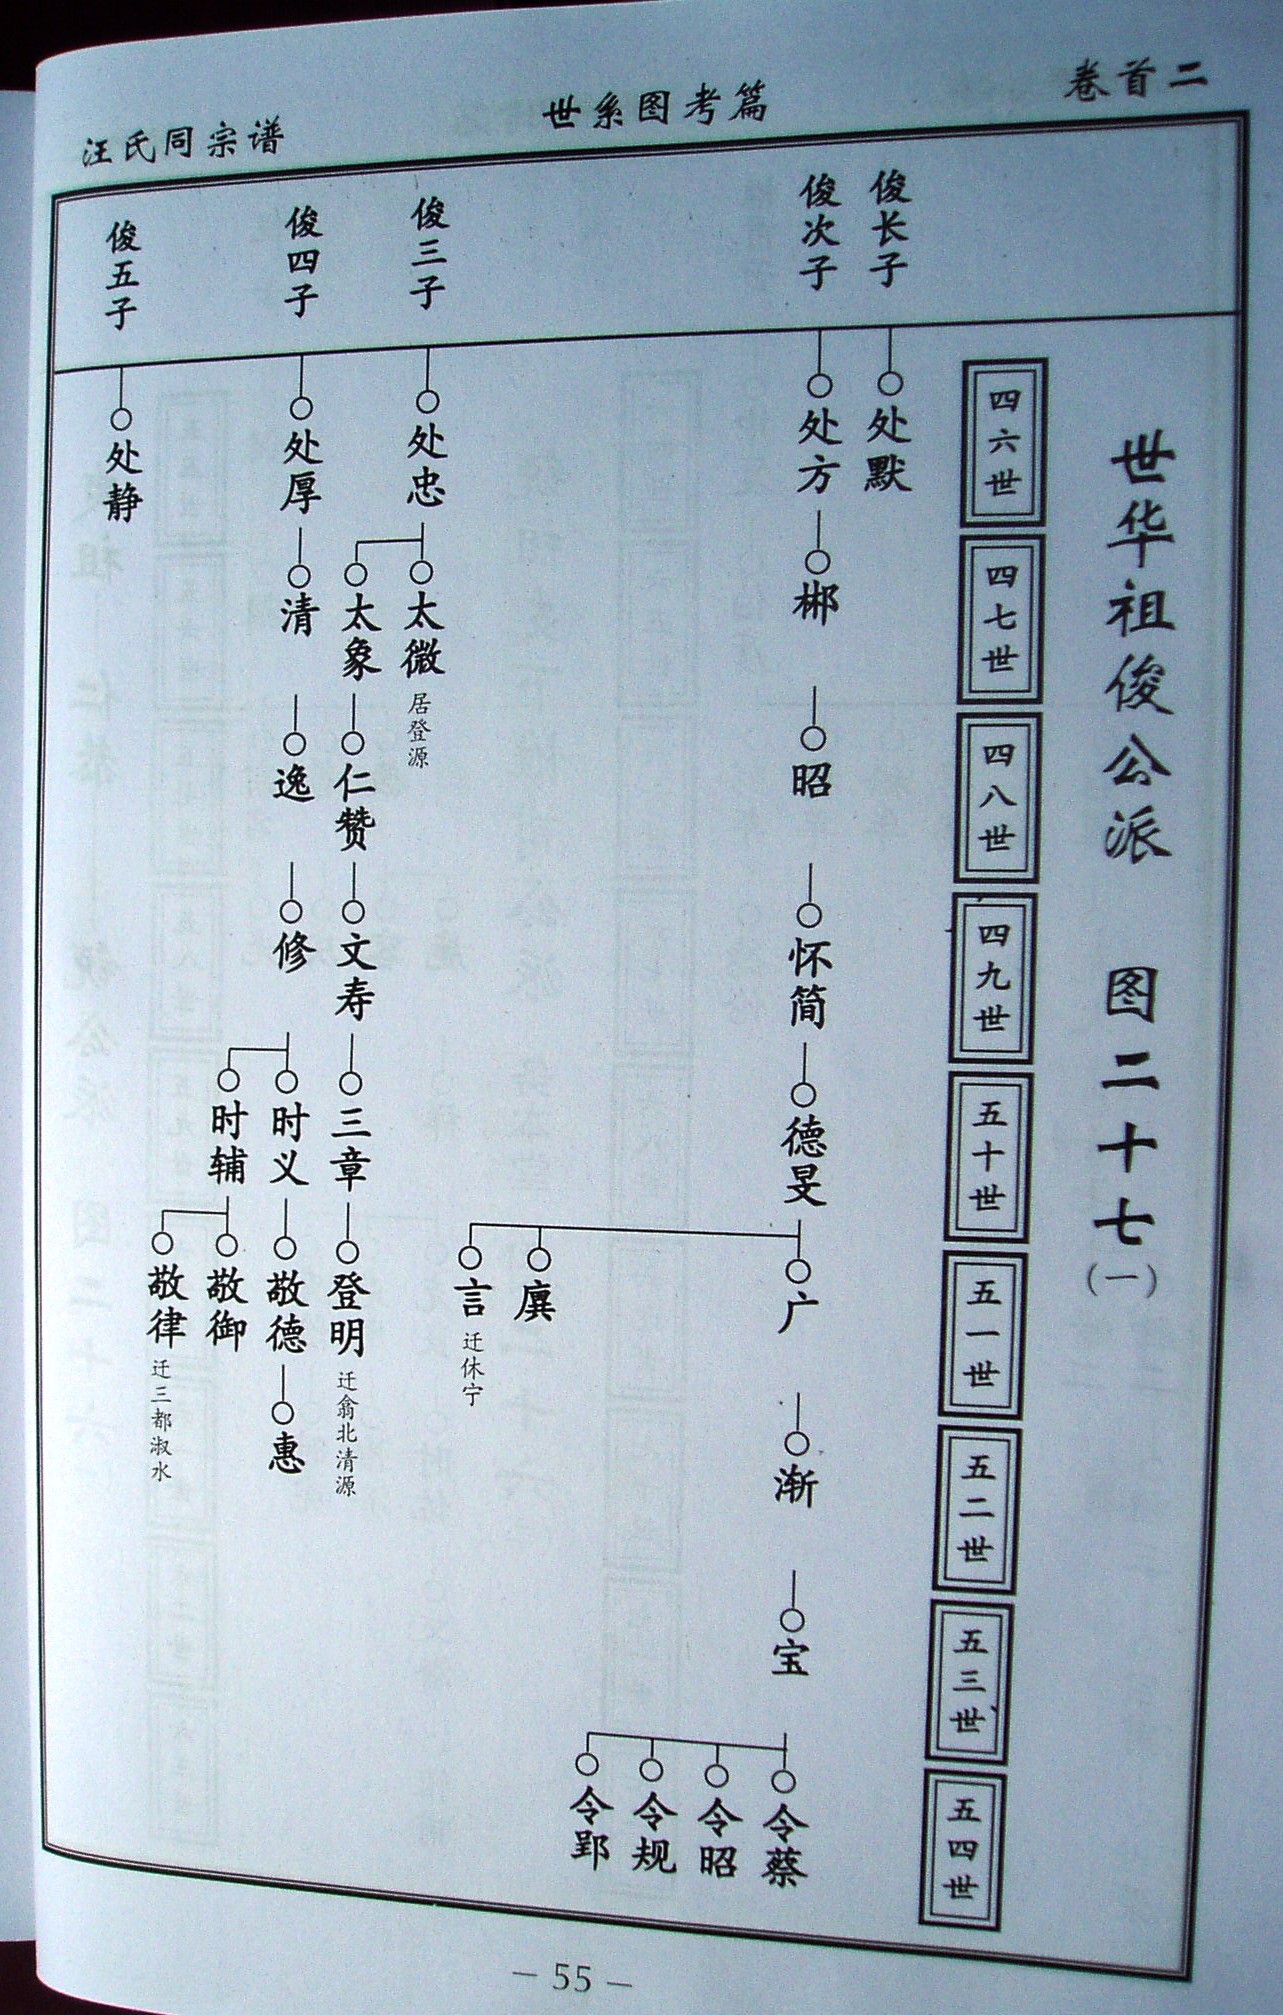 卷首二
世系图考篇
汪氏同宗谱
世华祖俊公派 图二十七(一)
四六世
四七世
四八世
四九世
五十世
五一世
五二世
五三世
五四世
俊长子
处默
俊次子
处方
郴
昭
怀简
德旻
广
渐
宝
令蔡
令昭
令规
令郢
廙
言
迁休宁
俊三子
处忠
太微
居登源
太象
仁赞
文寿
三章
登明
迁翕北清源
俊四子
处厚
清
逸
修
时义
敬德
惠
时辅
敬御
敬律
迁三都淑水
俊五子
处静
— 55 —